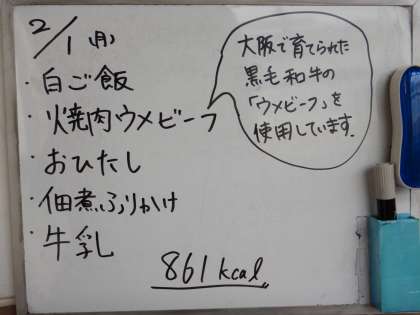 2/1(月)
・白ご飯
・焼肉ウメビーフ
・おひたし
・佃煮ふりかけ
・牛乳
861kcal
大阪で育てられた
黒毛和牛の
「ウメビーフ」を
使用しています.